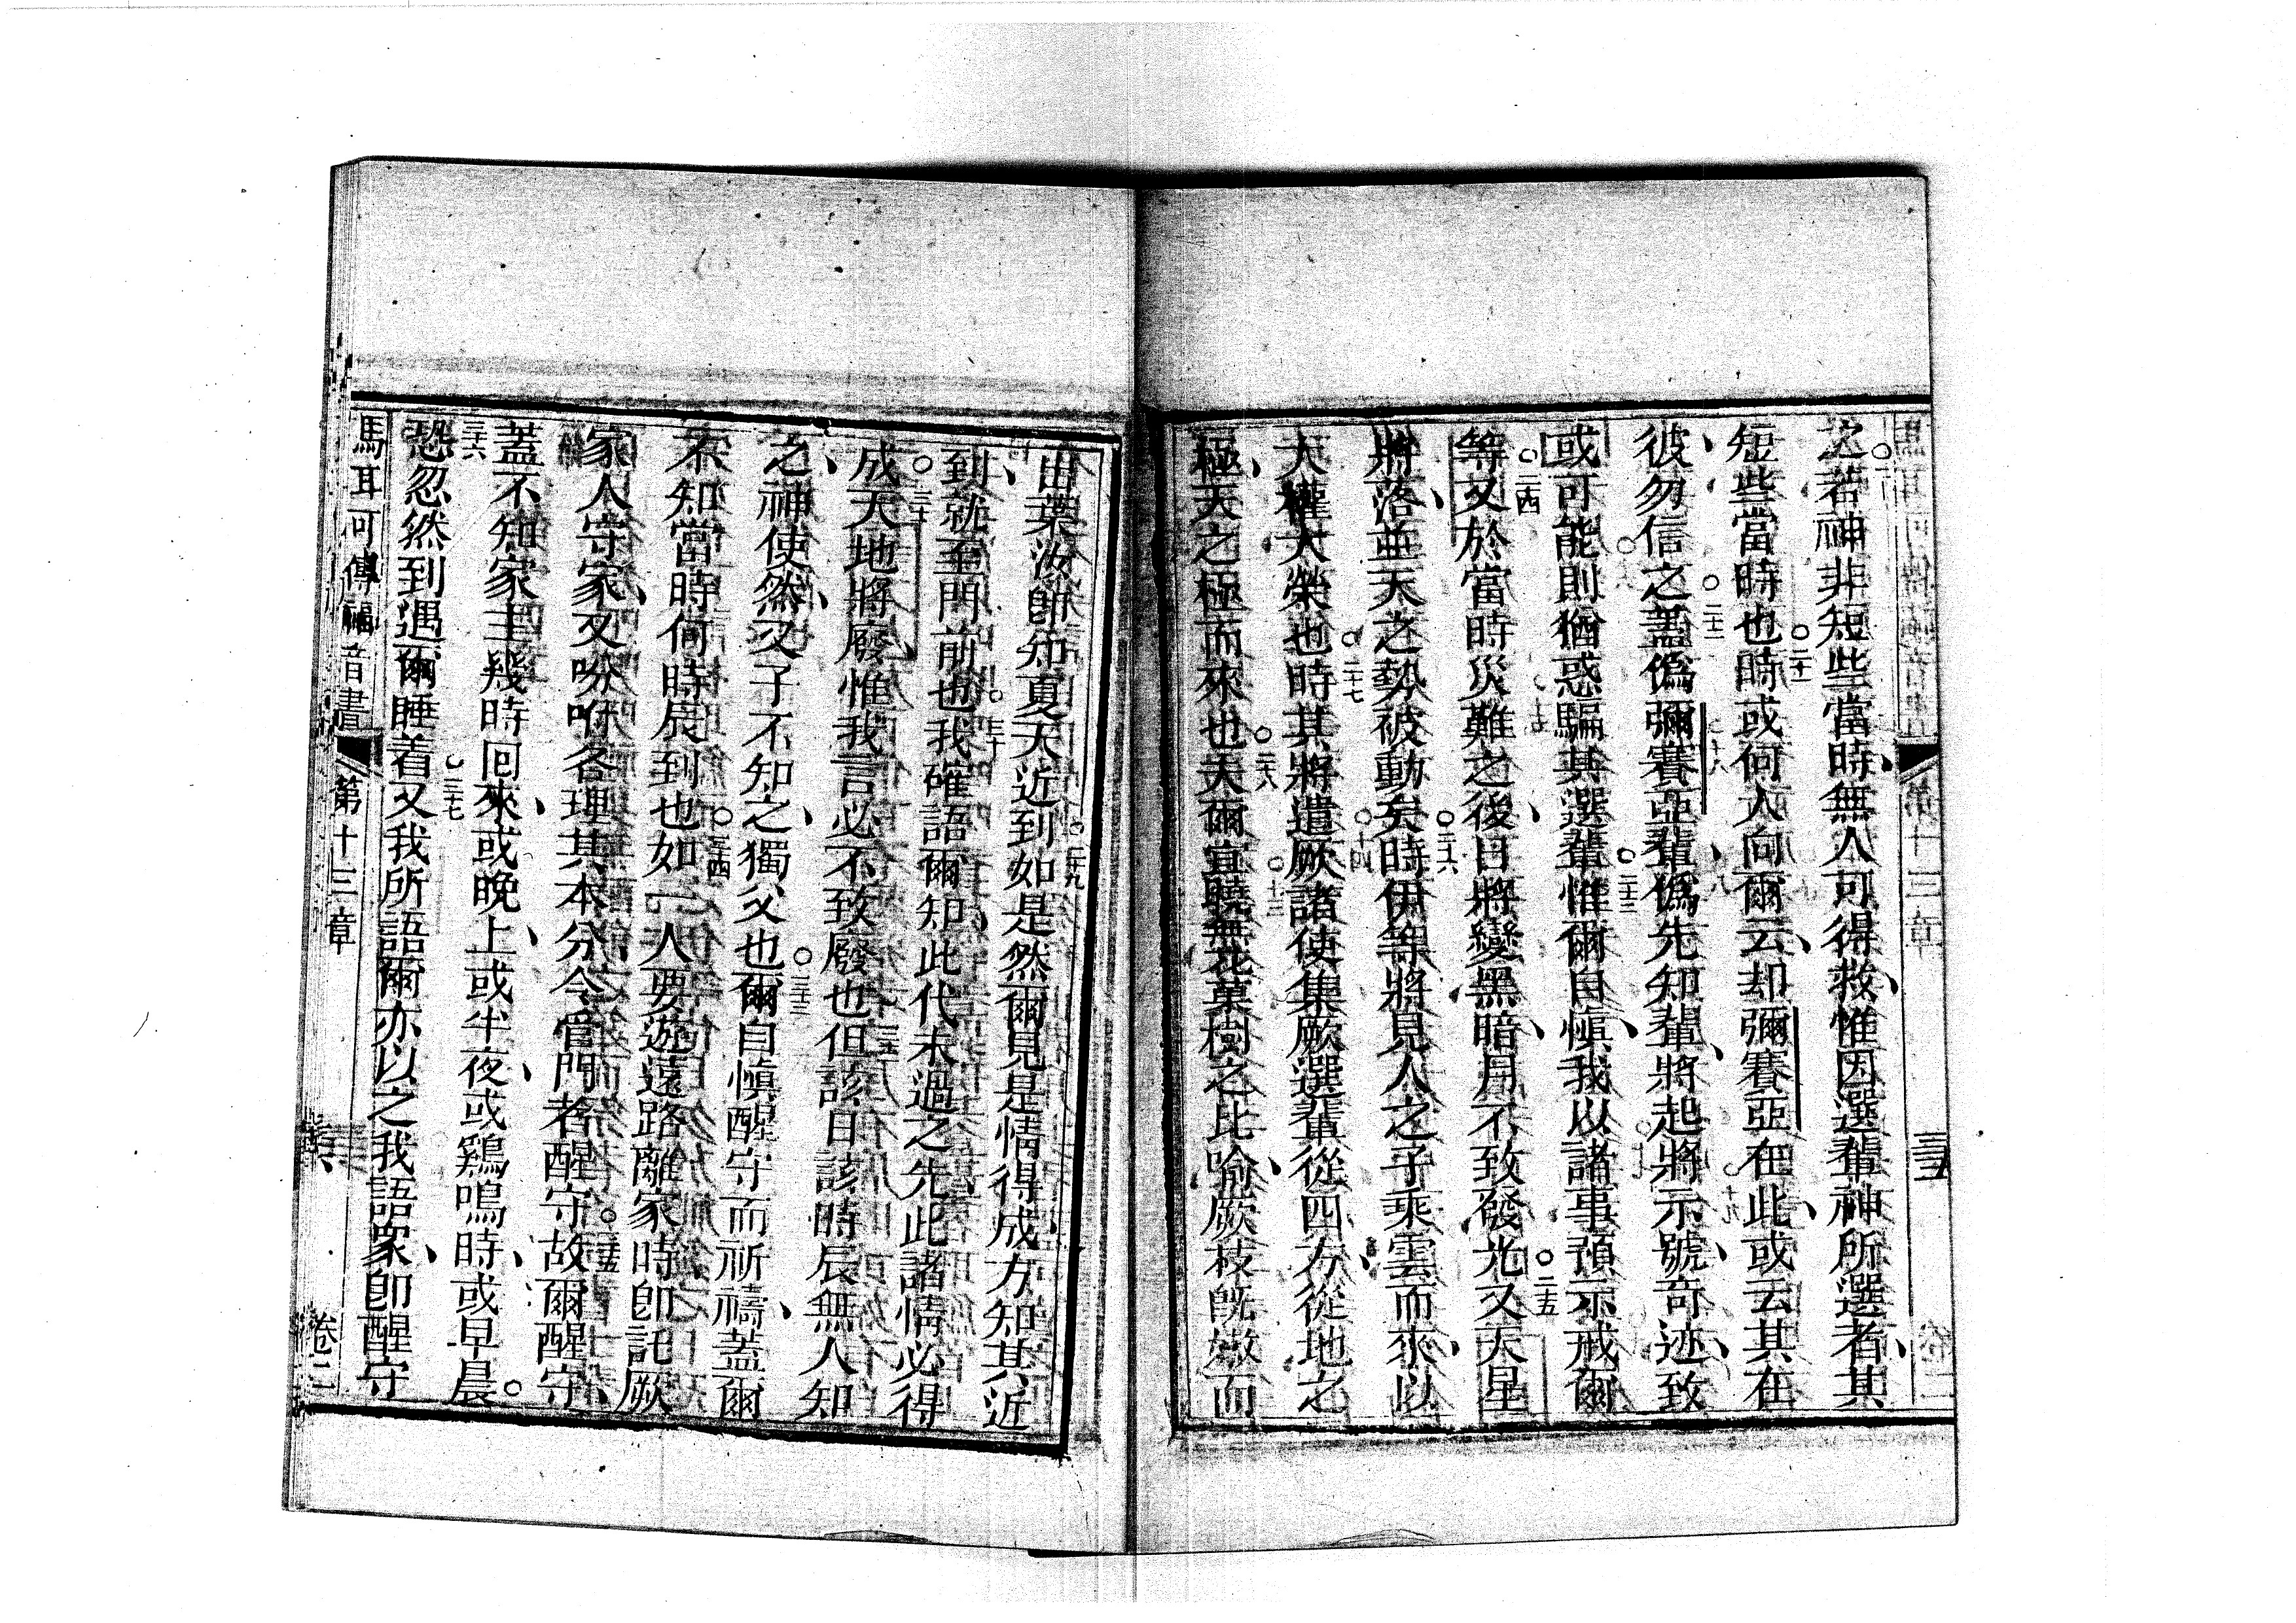 之○若神非短些當時、無人可得救、惟因選輩神所選者、其
短些當時也○二十一時或何人向爾云、却彌賽亞在此、或云其在
彼、勿信之○二十二蓋僞彌賽亞輩、僞先知輩、將起將示號、奇迹、致
或可能則猶惑騙其選輩○二十三惟爾自愼、我以諸事預示戒爾
等○二四又於當時災難之後、日將變黑暗、月不致發光○二五又天星
將落、並天之勢被動矣○二六時伊等將見人之子乘雲而來、以
大權大榮也○二七時其將遣厥諸使集厥選輩從四方、從地之
極、天之極而來也○二八夫爾宜曉無花菓樹之比喻、厥枝旣嫩而
出葉、汝卽知夏天近到○二九如是然爾見是情得成、方知其近
到、就至門前也○三十我確語爾知、此代未過之先、此諸情必得
成○三十一天地將廢、惟我言必不致廢也○三十二但該日該時辰無人知
之、神使然、又子不知之、獨父也○三十三爾自愼醒守而祈禱、蓋爾
不知當時何時辰到也○三四如一人要遊遠路、離家時、卽託厥
家人守家、又吩咐各理其本分、令管門者醒守○三五故爾醒守、
蓋不知家主幾時回來、或晚上、或半夜、或鷄鳴時、或早晨。
三六恐忽然到遇爾睡着○三七又我所語爾、亦以之我語眾、卽醒守
馬耳可傳福音書 第十三章 卷二